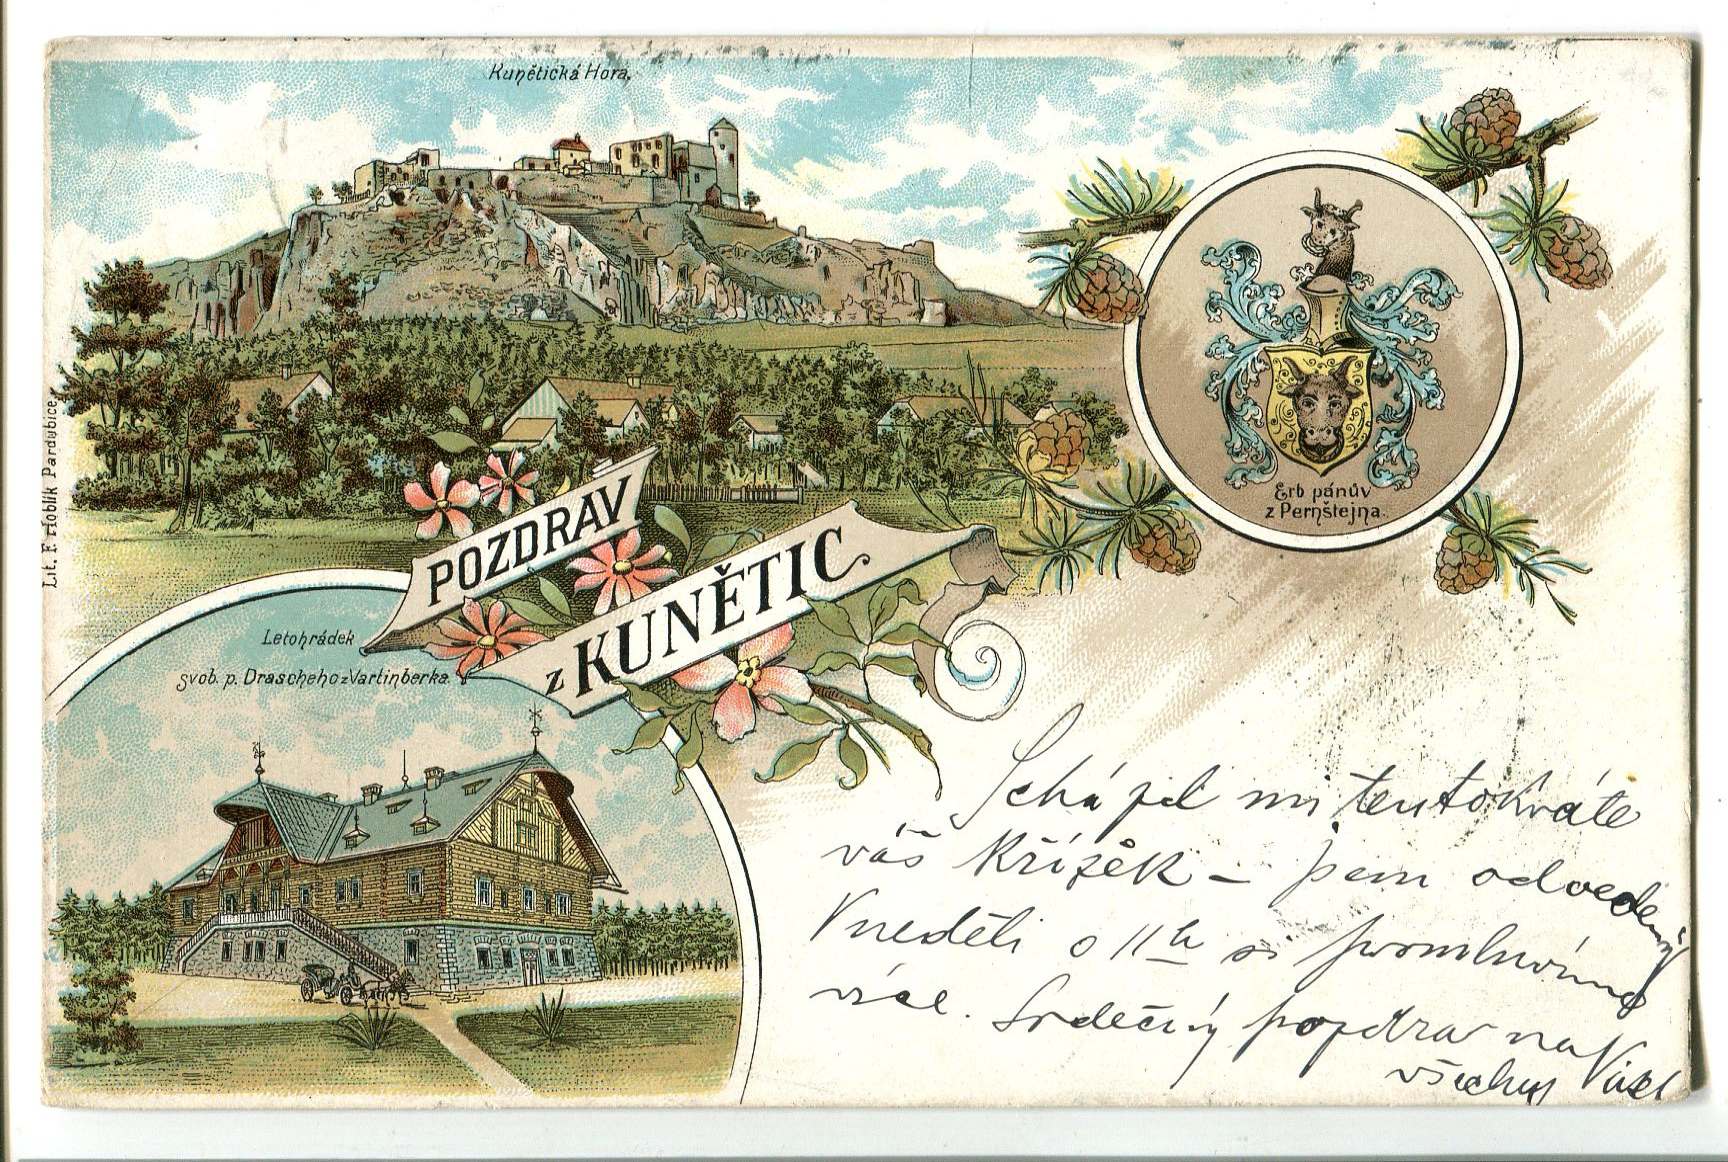 Kunětická Hora.
Erb pánův
z Pernštejna.
Lit. F. Hoblík Pardubice.
POZDRAV
z KUNĚTIC.
Letohrádek
svob. p. Drascheho z Vartinberka.
Schází mi tentokráte
váš Křížek – jsem odvedený
V neděli o 11h si promluvíme
více. Srdečný pozdrav na
všechny Vázl